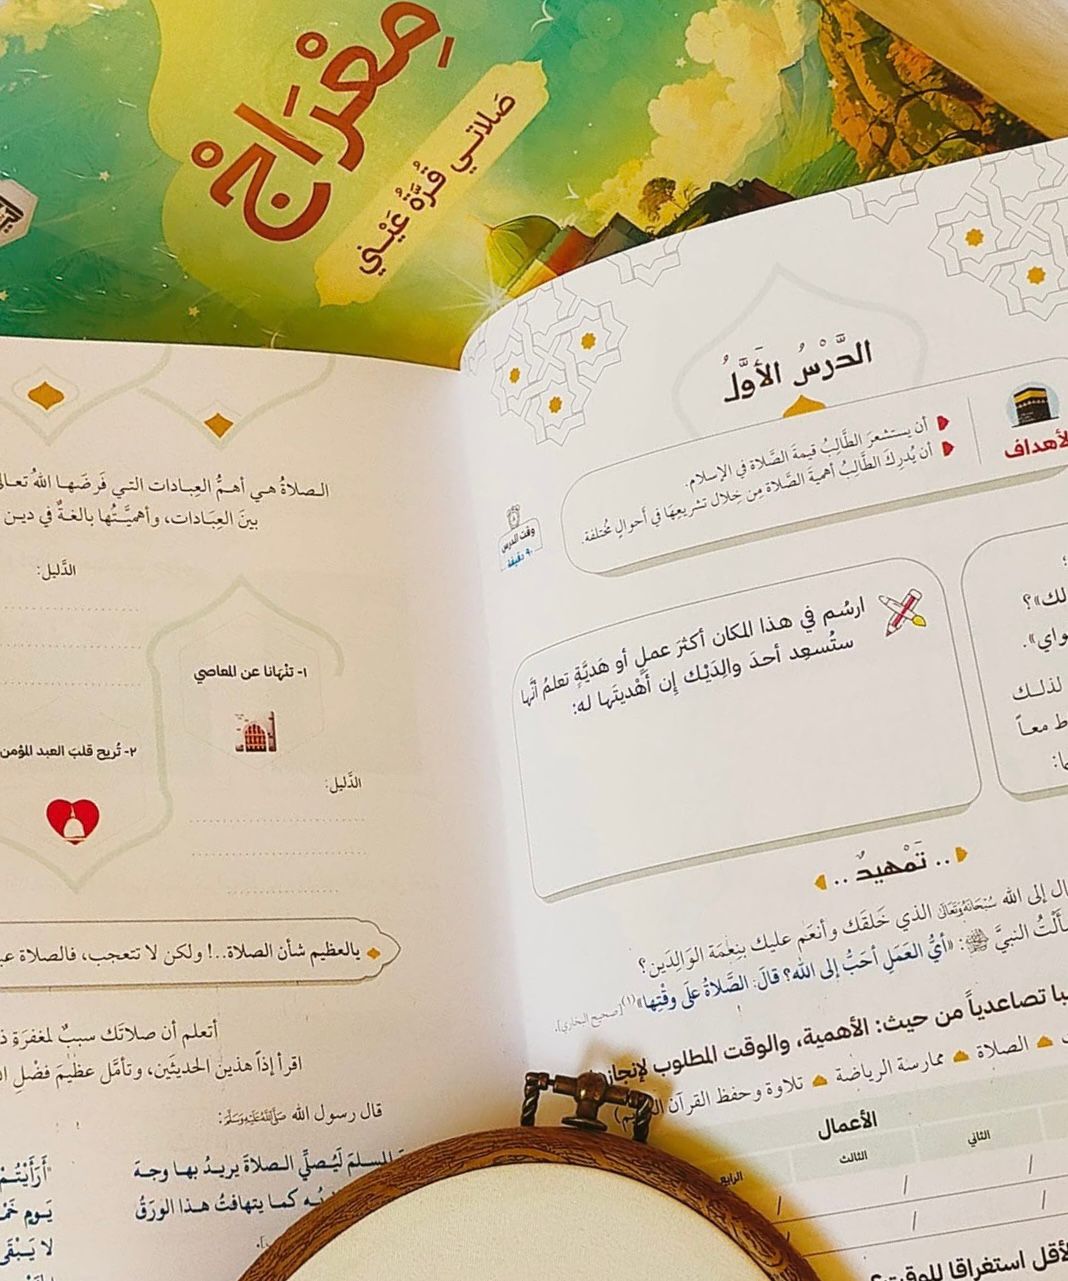 مِعْرَاجْ
صَلاتي قُرَّةُ عَيْني
الدَّرْسُ الأَوَّلُ
الأهداف
أن يستشعرَ الطَّالِبُ قيمةَ الصَّلاة في الإسلام.
أن يُدرِكَ الطَّالِبُ أهميةَ الصَّلاة مِن خِلال تشريعِهَا في أحوالٍ مُختلفة.
وقت الدرس
٩٠ دقيقة
ارسُم في هذا المكان أكثرَ عملٍ أو هَديَّةٍ تعلمُ أنَّها
ستُسعِد أحدَ والِدَيْك إن أهْديتَها له:
لك»؟
لذلك
معاً
.. تَمْهِيدٌ ..
إلى الله سُبْحَانَهُوَتَعَالَى الذي خَلقَك وأنعَم عليك بنِعْمَة الوَالِدَين؟
سَأَلْتُ النبيَّ ﷺ: «أيُّ العَمَلِ أحَبُّ إلى الله؟ قالَ: الصَّلاةُ علَى وقْتِها»(١) [صحيح البخاري].
تصاعدياً من حيث: الأهمية، والوقت المطلوب لإنجازه
الصلاة ممارسة الرياضة تلاوة وحفظ القرآن
الأعمال
الثاني الثالث الرابع
الأقل استغراقا للوقت؟
الصلاةُ هي أهمُّ العِبادات التي فَرضَها اللهُ تعالى
بينَ العِبَادات، وأهميَّتُها بالغةٌ في دين
الدَّليل:
١- تنْهَانا عن المعاصي
٢- تُريح قلبَ العبد المؤمن
الدَّليل:
يالعظيم شأن الصلاة..! ولكن لا تتعجب، فالصلاة
أتعلم أن صلاتَك سببٌ لمغفرَةِ
اقرأ إذاً هذينِ الحديثَين، وتأمَّل عظيمَ فضْلِ
قال رسول الله صَلَّىاللَّهُعَلَيْهِوَسَلَّمَ:
المسلمَ لَيُصلِّي الصلاةَ يريدُ بها وجهَ
كما يتهافتُ هذا الورَقُ
"أَرَأَيْتُمْ
يَوم
لا يَبْقَى